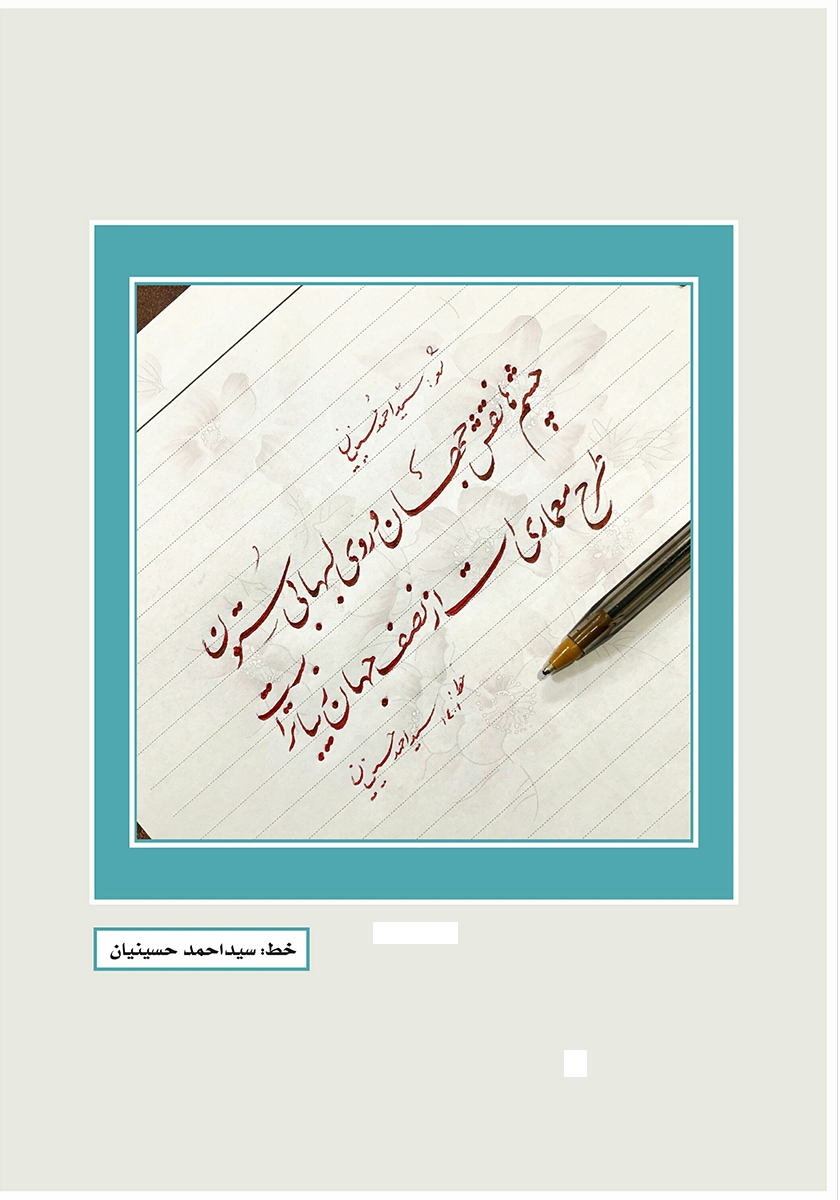 شعر: سیّد احمد حسینیان
چشم‌ها نقش جهان و روی لب‌ها بی ستون
طرح معماری است از نصف جهان زیباتر است
خط: سیداحمد حسینیان
۱۴۰۱
خط: سیداحمد حسینیان